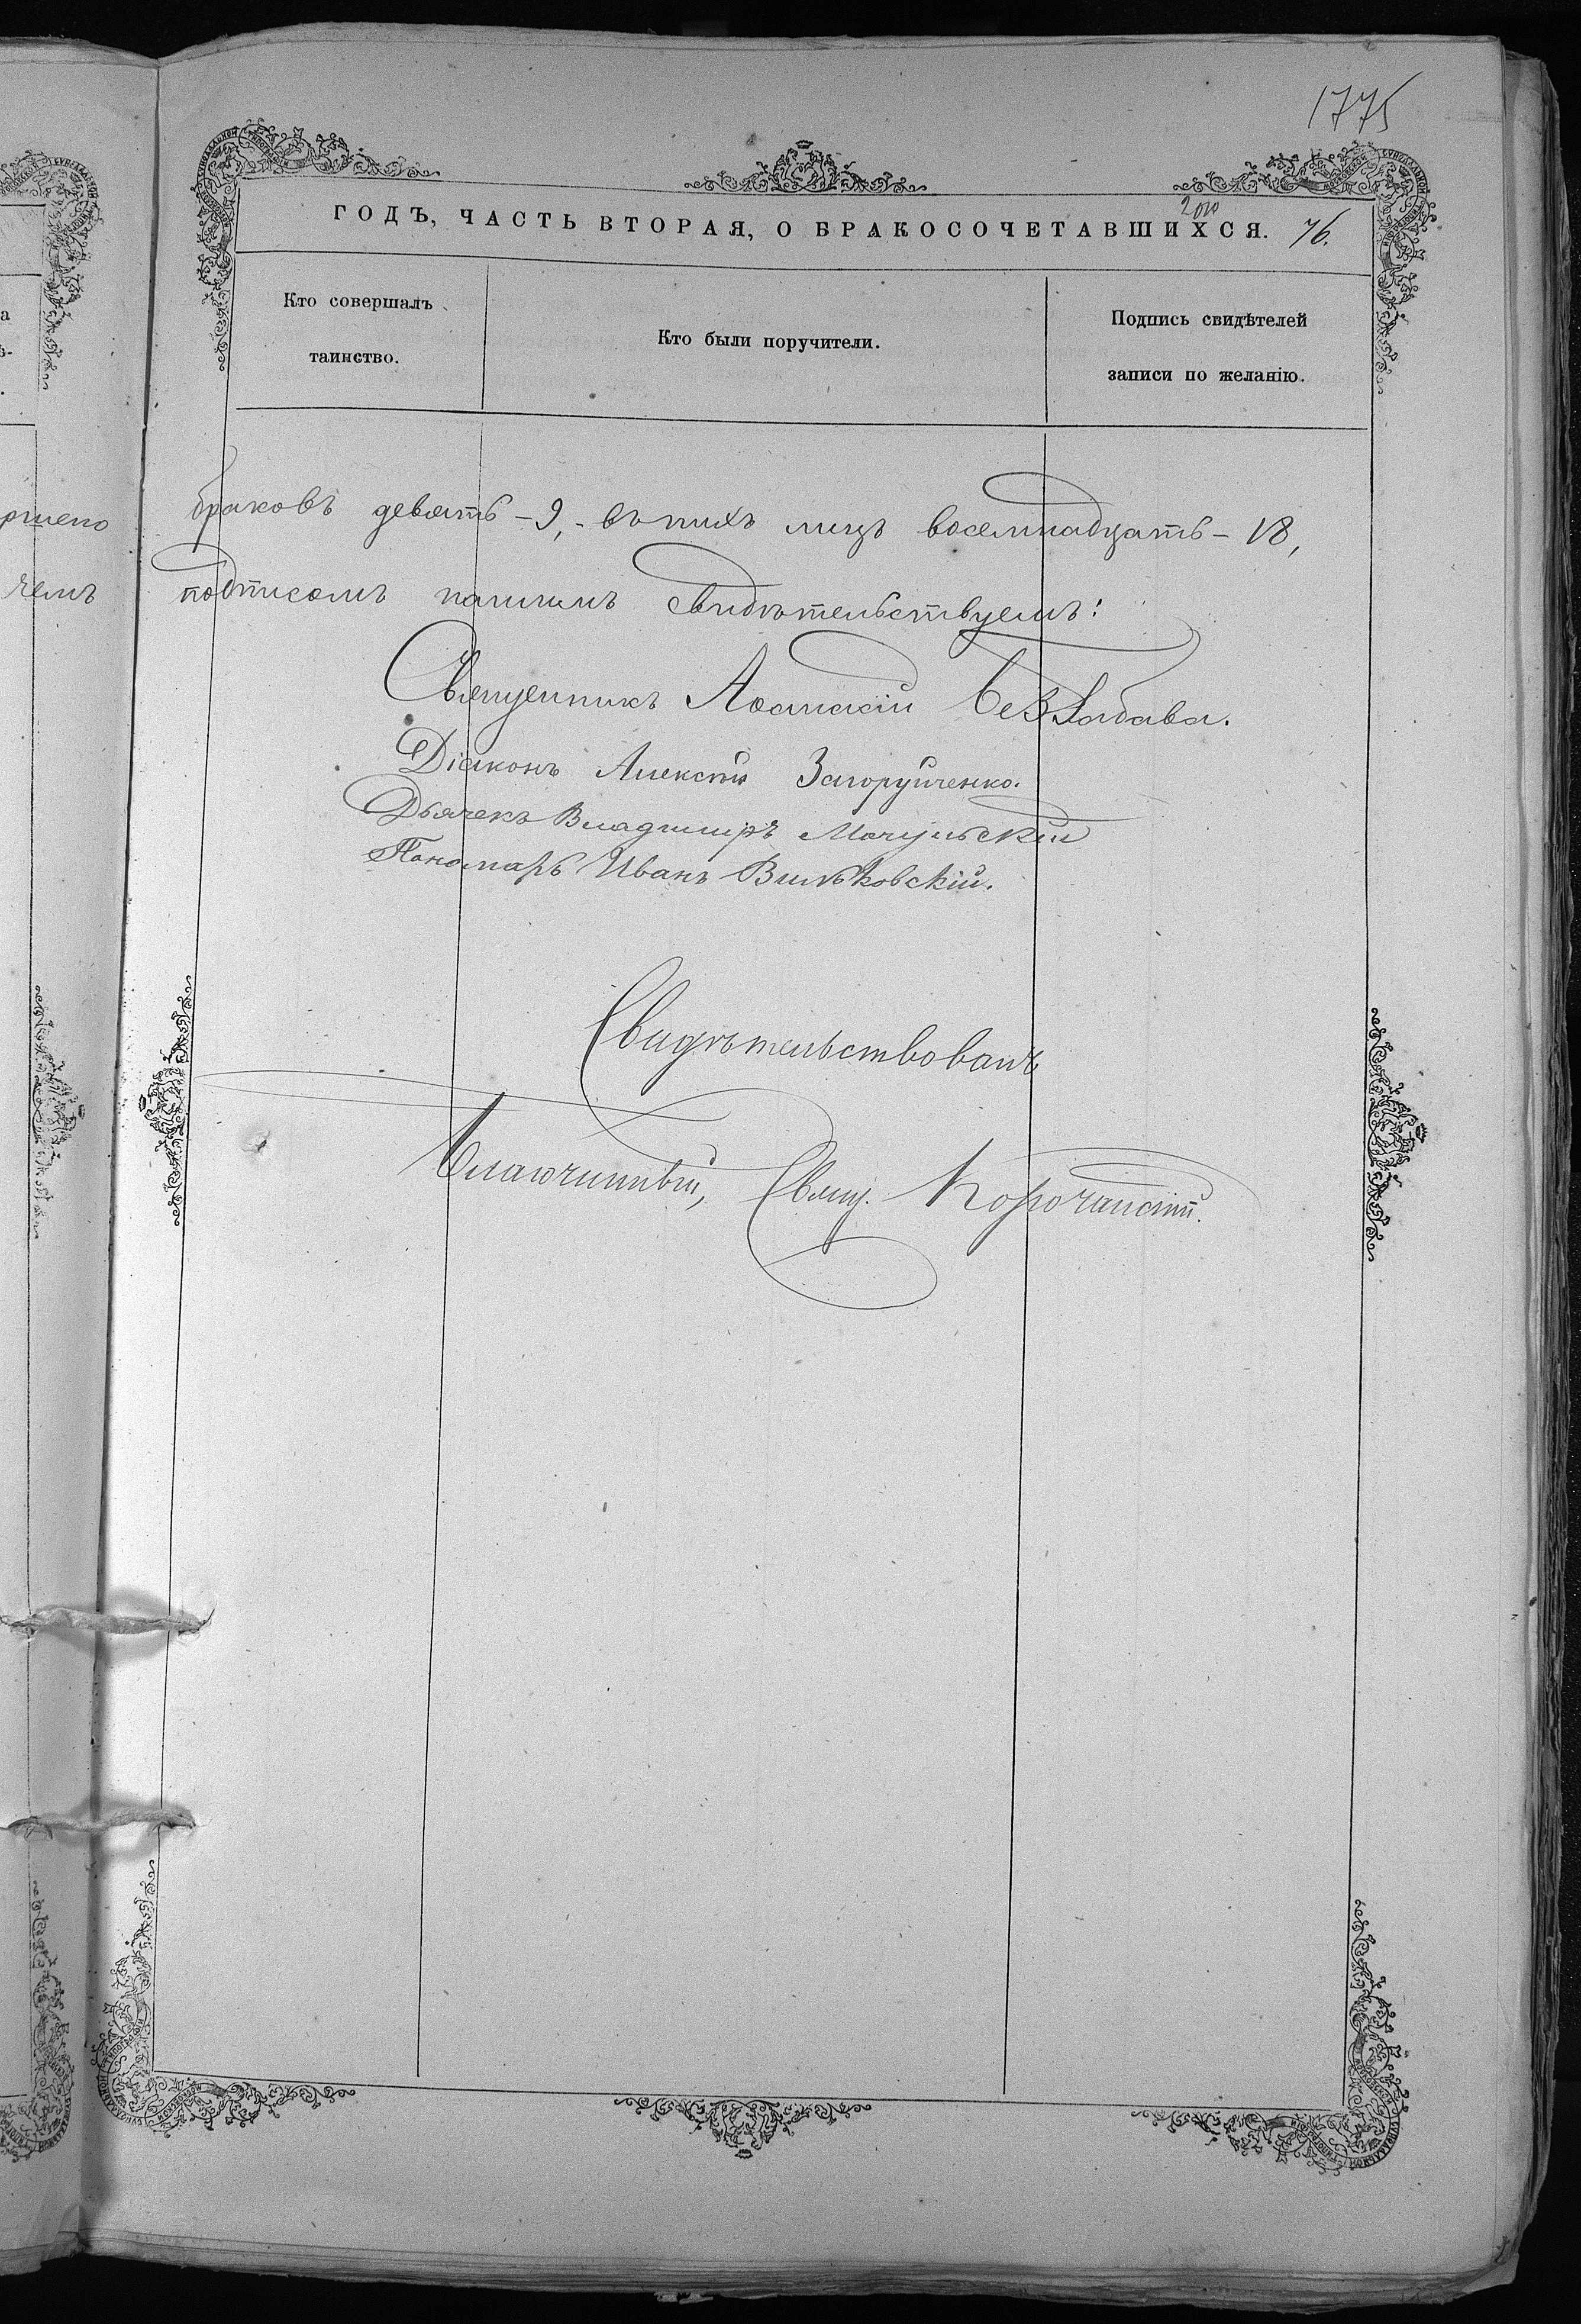 1775
ГОДЪ, ЧАСТЬ ВТОРАЯ, О БРАКОСОЧЕТАВШИХСЯ. 76.
Кто совершалъ
таинство.
Кто были поручители.
Подпись свидѣтелей
записи по желанію.
браковъ девять - 9, - въ нихъ лицъ восемнадцать - 18,
чемъ подписомъ нашимъ свидѣтельствуемъ:
Священникъ Аѳанасій
Діаконъ Алексѣй Загоруйченко.
Дьячекъ Владимиръ Мачульскій
Пономарь Иванъ Вильковскій.
Свидѣтельствовалъ
Благочинный, Свящ. Корочанскій.